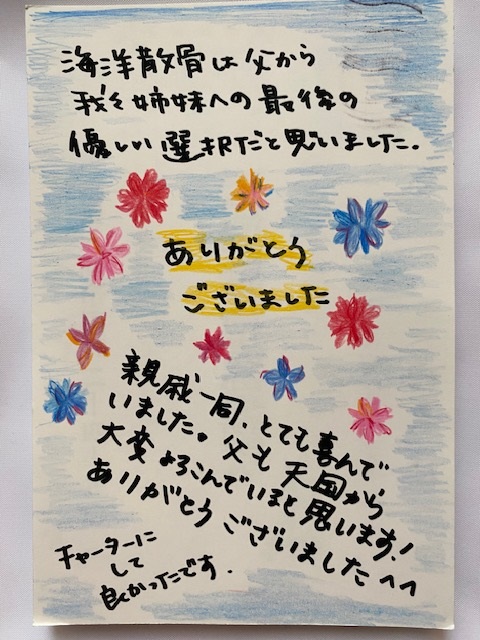 海洋散骨は父から
我々姉妹への最後の
優しい選択だと思いました。
ありがとう
ございました
親戚一同、とても喜んで
いました。父も天国から
大変よろこんでいると思います!
ありがとうございました^^
チャーターに
して
良かったです.